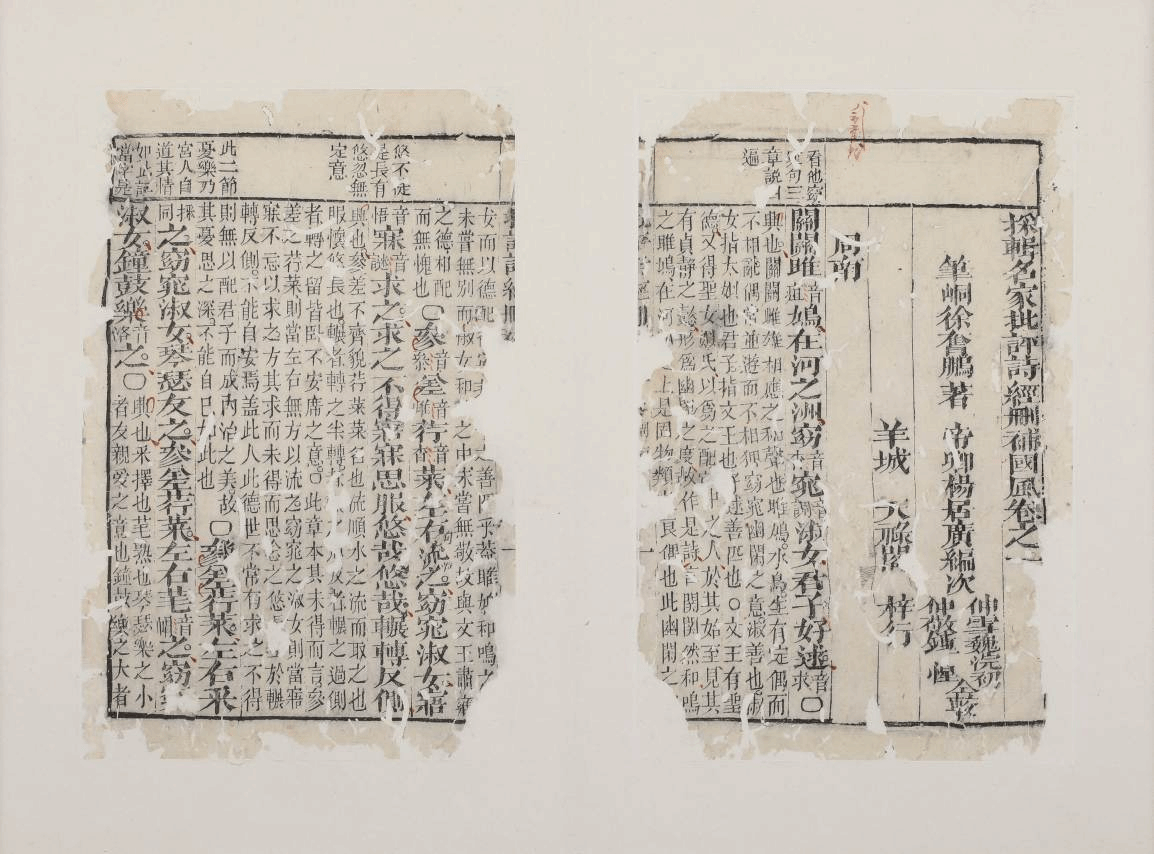 採輯名家批評詩經刪補國風卷之一
筆峒徐奮鵬著
帝卿楊居廣編次
仲雪魏浣初
仲敬鍾惺
仝校
羊城
天祿閣
梓行
周南
章說四
遍
關關雎音疽鳩在河之洲窈音杳窕淑女君子好逑音求〇
興也關關雌雄相應之和聲也雎鳩水鳥生有定偶而
不相亂偶常並遊而不相狎窈窕幽閒之意淑善也淑
女指太姒也君子指文王也逑善匹也〇文王有聖
德又得聖女姒氏以爲之配宮中之人於其始至見其
有貞靜之德形爲幽閒之度故作是詩言關關然和鳴
之雎鳩在河之上是固物類良偶也此幽閒之
女而以德配善匹乎蓋雎鳩和鳴之
未嘗無別而淑女和之中未嘗無敬故與文王肅雍
之德相配
而無愧也〇參音差音荇音杏菜左右流之窈窕淑女寤
悠不徒
是長有
悠忽無
定意
音悟寐音謎求之求之不得寤寐思服悠哉悠哉輾轉反側
興也參差不齊貌荇菜名也流順水之流而取之也
服懷也悠長也輾者轉之半轉者輾之過側
者轉之留皆臥不安席之意〇此章本其未得而言參
差之荇菜則當左右無方以流之窈窕之淑女則當寤
寐不忘以求之方其求而未得而思念之悠於輾
轉反側不能自安焉蓋此人此德世不常有求之不得
則無以配君子而成內治之美故
其憂思之深不能自已如此也〇參差荇菜左右采
此二節
憂樂乃
宮人自
道其情
如此說
當字是
之窈窕淑女琴瑟友之參差荇菜左右芼音帽之窈窕
淑女鐘鼓樂音洛之〇興也采擇也芼熟也琴瑟樂之小
者友親愛之意也鐘鼓樂之大者